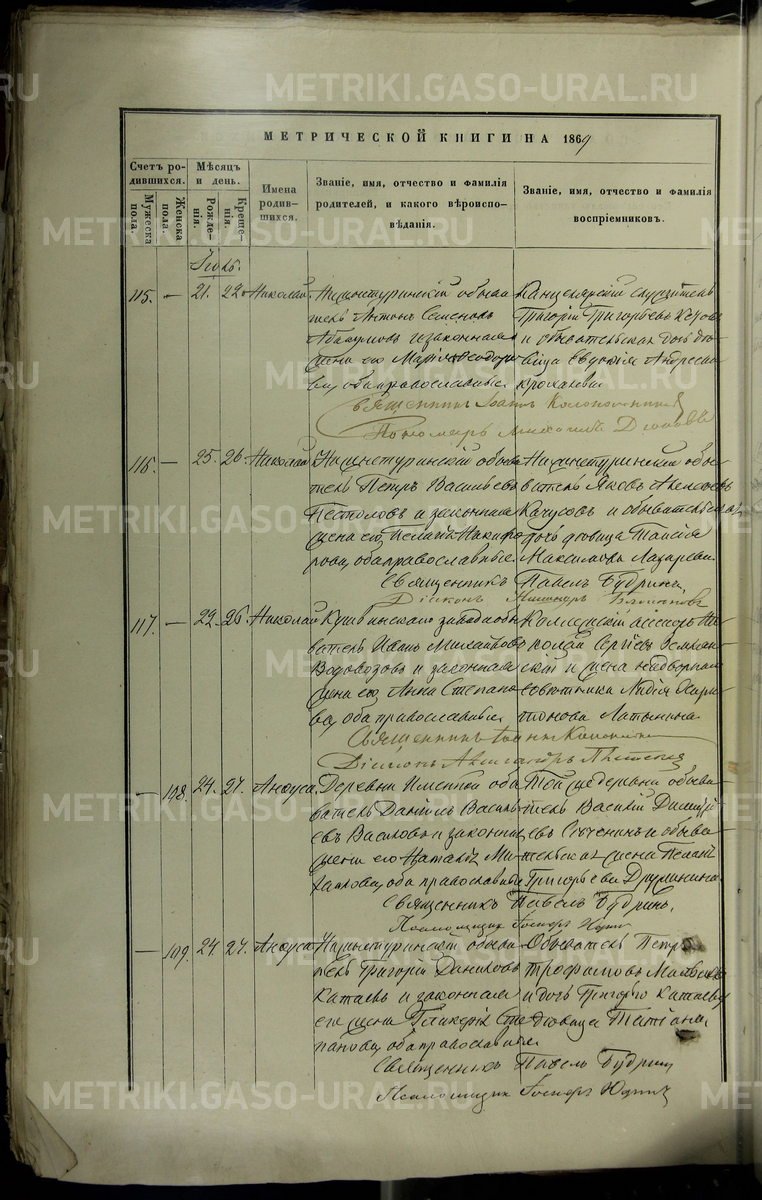 МЕТРИЧЕСКОЙ КНИГИ НА 1869
Счетъ родившихся.
Мужеска пола.
Женска пола.
Мѣсяцъ и день.
Рожденія.
Крещенія.
Имена родившихся.
Званіе, имя, отчество и фамилія родителей, и какого вѣроисповѣданія.
Званіе, имя, отчество и фамилія воспріемниковъ.
Іюль.
115. — 21. 22. Николай
Нижнетуринскій обыва
тель Антонъ Семеновъ
и законная
жена его Марія Ѳеодоро
ва, оба православные.
Канцелярскій служитель
Григорій Григорьевъ
и обывательская дочь дѣ
вица Евдокія Андреева
Священникъ Іоаннъ
Пономарь
116. — 25. 26. Николай
Нижнетуринскій обыва
тель Петръ Васильевъ
и законная
жена его Пелагія Никифо
рова, оба православные.
Нижнетуринскій обы
ватель Яковъ Алексѣевъ
и обывательская
дочь дѣвица Таисія
Максимова Лазарева.
Священникъ Павелъ Будринъ.
Діаконъ
117. — 22. 26. Николай
Кушвинскаго завода обы
ватель Иванъ Михайловъ
Водовозовъ и законная
жена его Анна Степано
ва, оба православные
Коллежскій ассесоръ Ни
колай Сергѣевъ
и жена надворнаго
совѣтника Лидія
Латынина.
Священникъ Іоаннъ
Діаконъ Александръ
— 108. 24. 27. Анфуса.
Деревни Именной обы
ватель Даніилъ Василь
евъ Васиховъ и законная
жена его Наталія Ми
хаилова, оба православные
Той же деревни обыва
тель Василій Димитрі
евъ и обыва
тельская жена Пелагія
Григорьева Дружинина.
Священникъ Павелъ Будринъ.
Псаломщикъ
— 109. 24. 27. Анфуса.
Нижнетуринскій обыва
тель Григорій Даниловъ
Катаевъ и законная
его жена Гликерія Сте
панова, оба православные
Обыватель Петръ
Трофимовъ
и дочь Григорія Катаева
дѣвица Татіана.
Священникъ Павелъ Будринъ
Псаломщикъ
METRIKI.GASO-URAL.RU